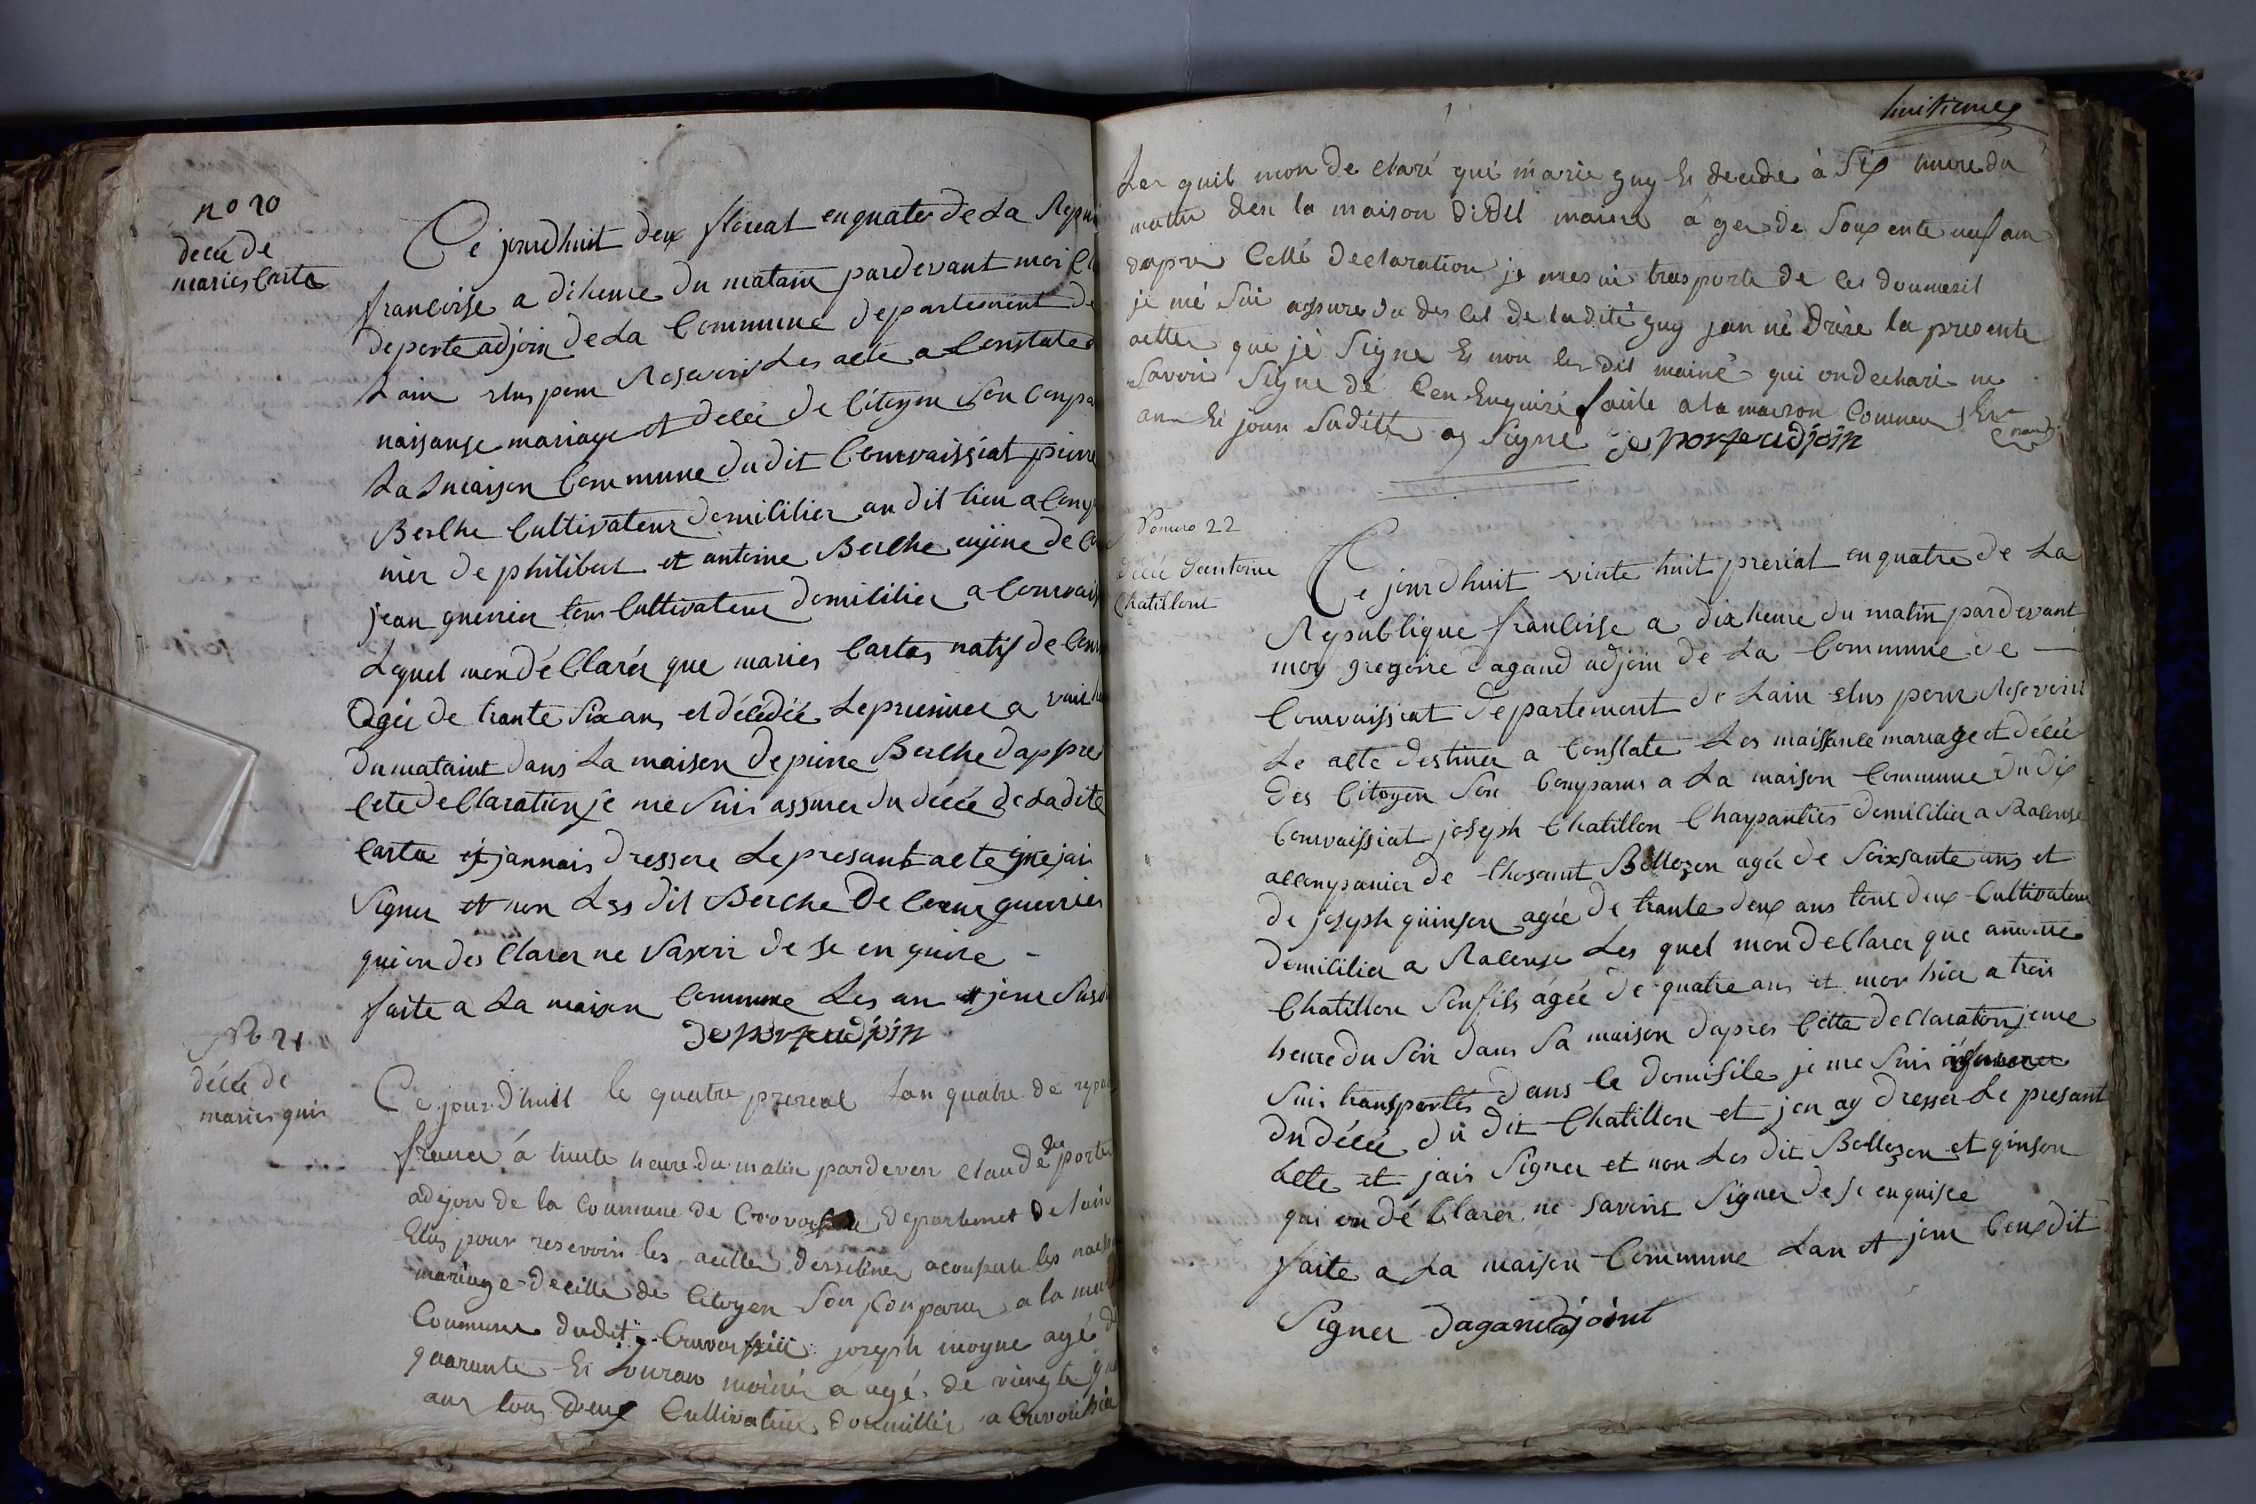 no 20
décé de
maries Carte
Ce jourdhuit deux floreal enquatre de La Repu
francoise a diheure du matain pardevant moi Cl
deporte adjoin de La Commune departement de
Lain elus pour Reservoir Les acte a Constate
naisanse mariage et décé de Citoyen Son Conpa
La maison Commune du dit Courvaissiat pierre
Berche Cultivateur domicilier au dit lieu a Conp
nier de philibert et antoine Berche
jean guerrier tous Cultivateur domicilier a Courvais
Lequel mon déClarér que maries Cartes natif de Cour
Ogée de trante Six ans et décédée Le premier a
du mataint dans La maison de pierre Berche dappre
Cete deClaration je me Suis assurer du décé de Ladite
Carte et jannais dressere Le presant acte que jai
Signer et non Les dit Berche De Coeur guerrier
qui on des Clarer ne Savoir de Se en quire -
faite a La maison Commune Les an et jour Susd
deporte adjoin
No 21
décée de
maries guis
Ce jour d'huit le quatre prereal Lan quatre de repu
france á huite heure du matin pardeven claude de porte
adejon de la Coumune de departemet de lain
Elus pour resevoir les actter desseliner aconstate les nais
mariage decille de Citoyen Son Conparu a la mai
Coumune dudit joseph moyne agé d
quarante Et moine a agé de viengte
ans tous deux Cultivateur doumillier a
huitieme
Les quil mon de claré qué marie guy Es decede à Six heure du
matin den la maison dudit moine a ger de Soixente neuf an
dapre Cette declaration je me sui trasporte de les doumesil
je mé Sui assure du des Ces de ladité guy jan né drése la presente
actter que jé Signe Et non les dit moine qui on declare ne
Savoir Signe dé Cen Enquiri faite a la maison Commun
an Et jour Sudítt ay Signe deporte adjoin
Nomero 22
décé dantoine
Chatillont
Ce jourdhuit vinte huit preriat en quatre de La
Republique francoise a dix heure du matin pardevant
moy gregoire dagand adjoin de La Commune de —
Courvaissiat departement de Lain elus pour Reservoir
Le acte destiner a Constate Les naissance mariage et décée
des Citoyen Son Conparus a La maison Commune du dit
Courvaissiat joseph Chatillon Charpantier domicilier a Racouse
acconpanier de Bollozon agée de Soixsante ans et
de joseph guinson agée de trante deux ans tout deux Cultivateur
domicilier a Racouse Les quel mon deClarer que antoine
Chatillon Son fils ágée de quatre ans et mor hier a trois
heure du Soir dans Sa maison dapres Cette deClaration je me
Suis transportés dans le domisile je me Suis assurer
du décée du dit Chatillon et jen ay dresser Le presant
acte et jais Signer et non Les dit Bollozon et ginson
qui on déClarer ne Savoint Signer de Se enquisce
faite a La maison Commune Lan et jour Ceusdit
Signer dagand adjoint